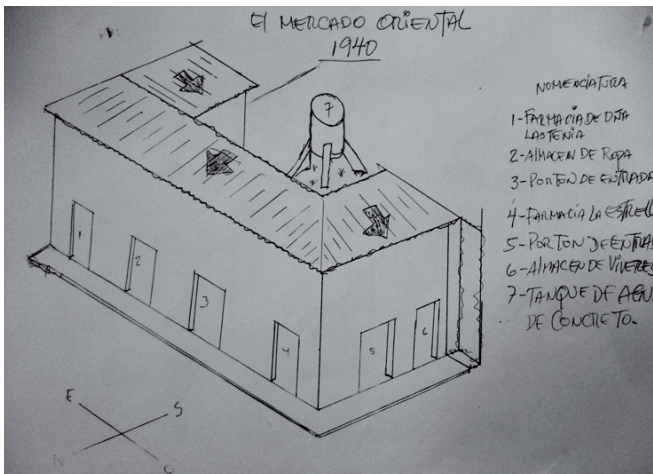 El MERCADO ORIENTAL
1940
NOMENCLATURA
1-FARMACIA DE DÑA
LASTENIA
2-AlMACEN DE ROPA
3-PORTON DE ENTRADA
4-FARMACIA LA ESTRELL
5-PORTON DE ENTRA
6-AlMACEN DE VIVERES
7-TANQUE DE AGU
DE CONCRETO.
7
1
2
3
4
5
6
E
S
N
O